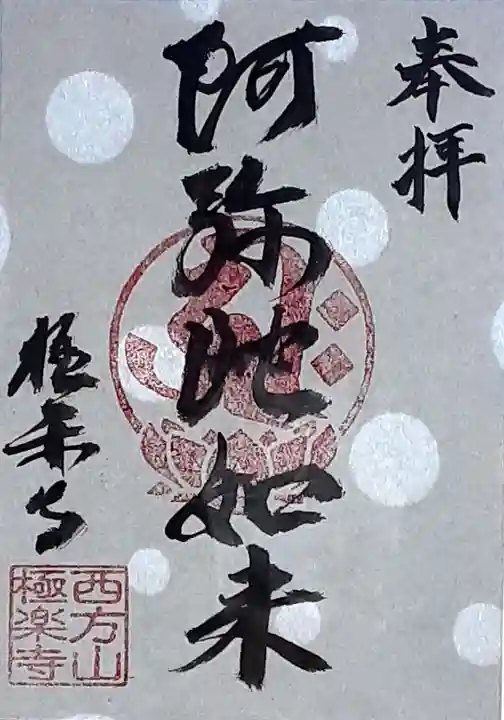 奉拝
阿弥陀如来
極楽寺
西方山
極楽寺